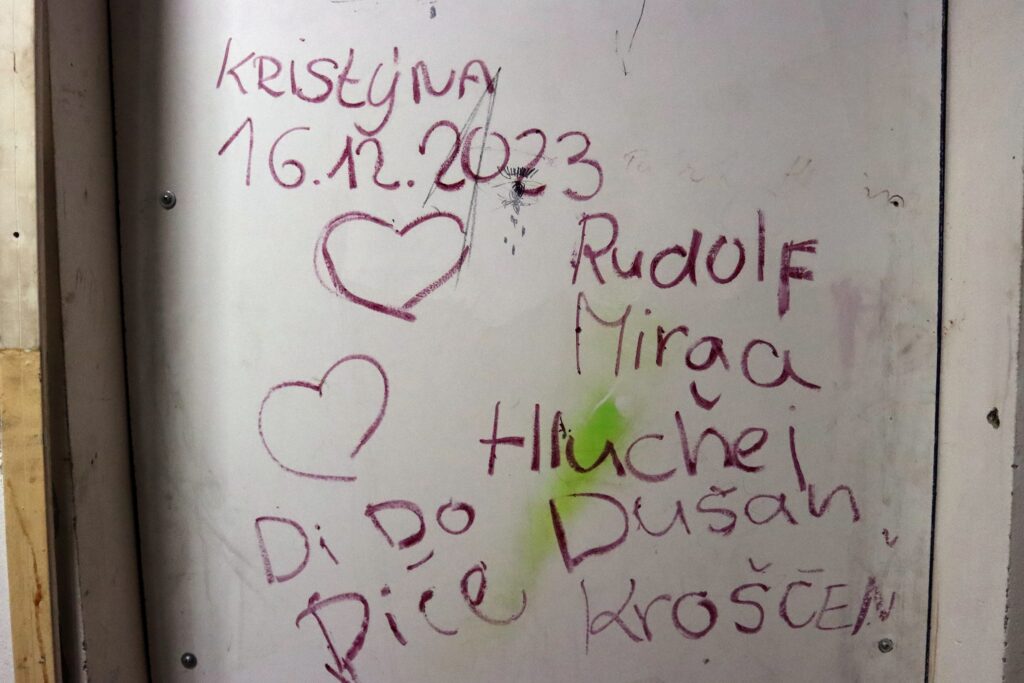 KRISTÝNA
16.12.2023
Rudolf
Mirga
Hluchej
Dušan
KROŠČEN
Di Do
Piče